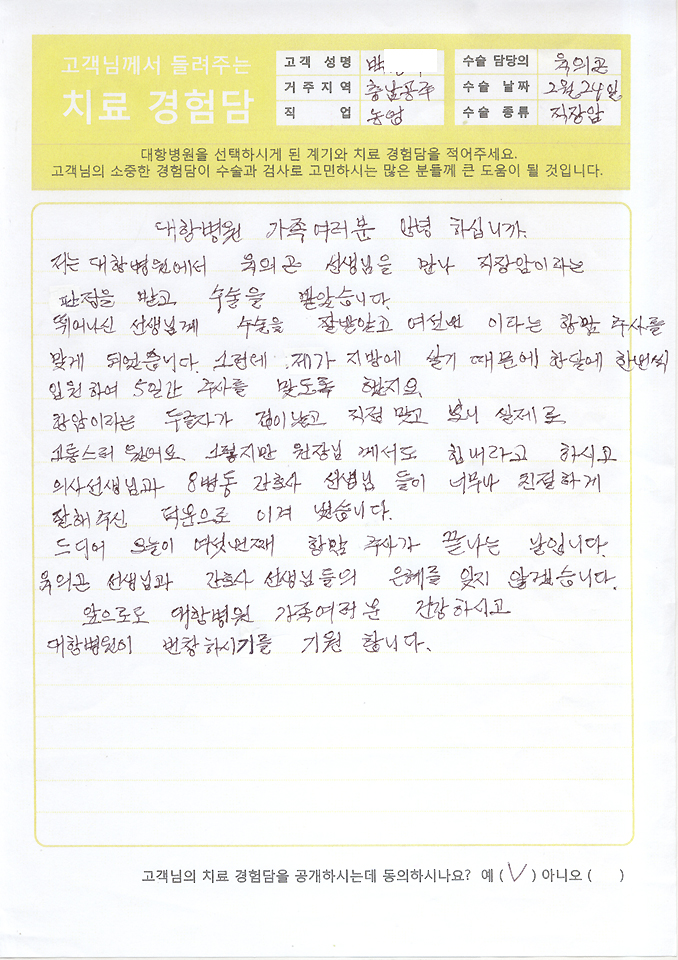 고객님께서 들려주는
치료 경험담
고객 성명 박 수술 담당의 육의곤
거주지역 충남공주 수술 날짜 2월 24일
직 업 농업 수술 종류 직장암
대항병원을 선택하시게 된 계기와 치료 경험담을 적어주세요.
고객님의 소중한 경험담이 수술과 검사로 고민하시는 많은 분들께 큰 도움이 될 것입니다.
대항병원 가족여러분 안녕 하십니까.
저는 대항병원에서 육의곤 선생님을 만나 직장암이라는
판정을 받고 수술을 받았습니다.
뛰어나신 선생님게 수술을 잘받았고 여섯번 이라는 항암 주사를
맞게 되었습니다. 그런데 제가 지방에 살기 때문에 한달에 한번씩
입원하여 5일간 주사를 맞도록 했지요
항암이라는 두글자가 겁이났고 직접 맞고 보니 실제로
고통스러 웠어요. 그렇지만 원장님 께서도 힘내라고 하시고
의사선생님과 8병동 간호사 선생님 들이 너무나 친절하게
잘해주신 덕분으로 이겨 냈습니다.
드디어 오늘이 여섯번째 항암 주사가 끝나는 날입니다.
육의곤 선생님과 간호사 선생님들의 은혜를 잊지 않겠습니다.
앞으로도 대항병원 가족여러분 건강하시고
대항병원이 번창하시기를 기원 합니다.
고객님의 치료 경험담을 공개하시는데 동의하시나요? 예 ( V ) 아니오 ( )